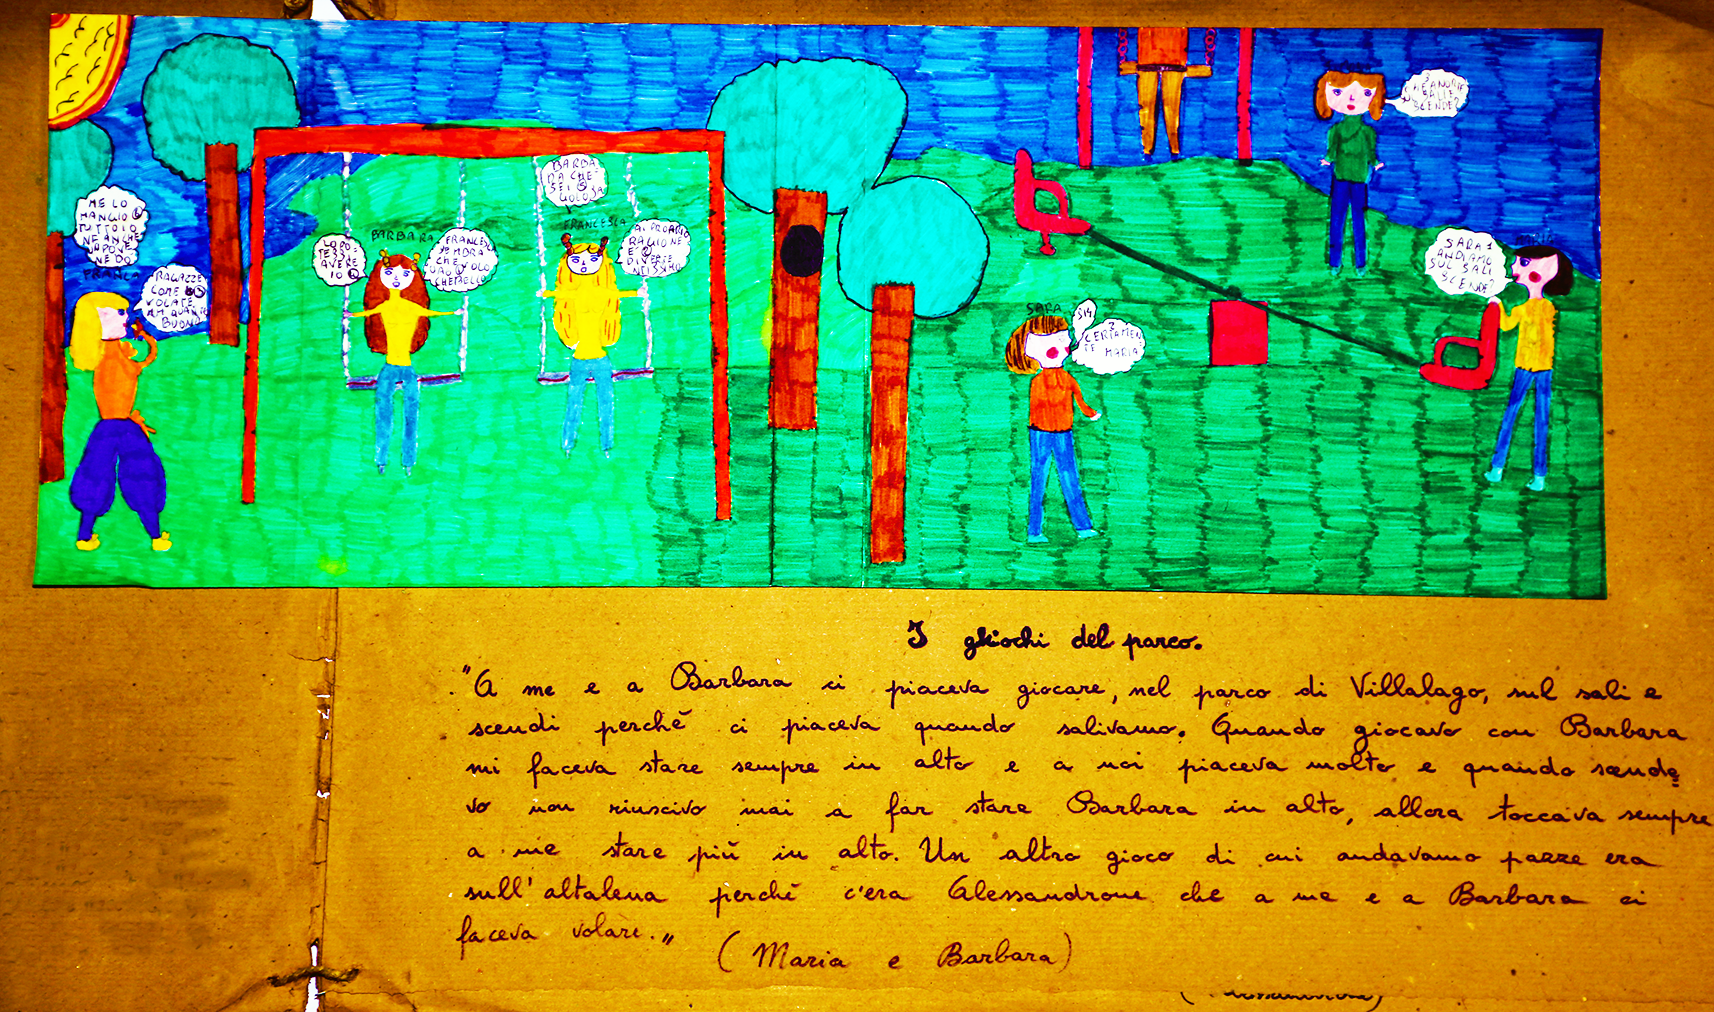 ME LO
MANGIO
TUTTO IO
NEANCHE
UN PO VE
NE DO
FRANCA
RAGAZZE
COME
VOLATE
BUONO
BARBARA
FRANCESCA
SEMBRA
CHE
VOLO
CHE BELLO
BARBA
RA CHE
SEI
GOLOSA
FRANCESCA
AI PROPRIO
RAGIONE
E
DIVERTE
SARA
SI
CERTAMEN
TE MARIA
SCENDE?
SARA
ANDIAMO
SUL SALI
SCENDE?
I ghiochi del parco.
"A me e a Barbara ci piaceva giocare, nel parco di Villalago, sul sali e
scendi perchè ci piaceva quando salivamo. Quando giocavo con Barbara
mi faceva stare sempre in alto e a noi piaceva molto e quando scende
vo non riuscivo mai a far stare Barbara in alto, allora toccava sempre
a me stare più in alto. Un altro gioco di cui andavamo pazze era
sull'altalena perchè c'era Alessandrone che a me e a Barbara ci
faceva volare."
(Maria e Barbara)